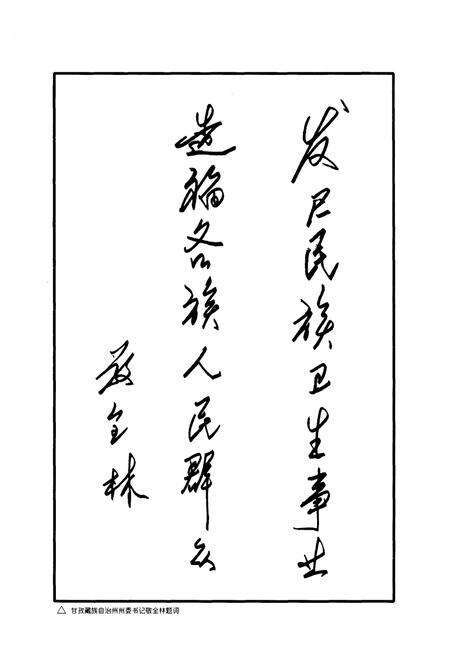 发展民族卫生事业
造福各族人民群众
敬全林
△ 甘孜藏族自治州州委书记敬全林题词